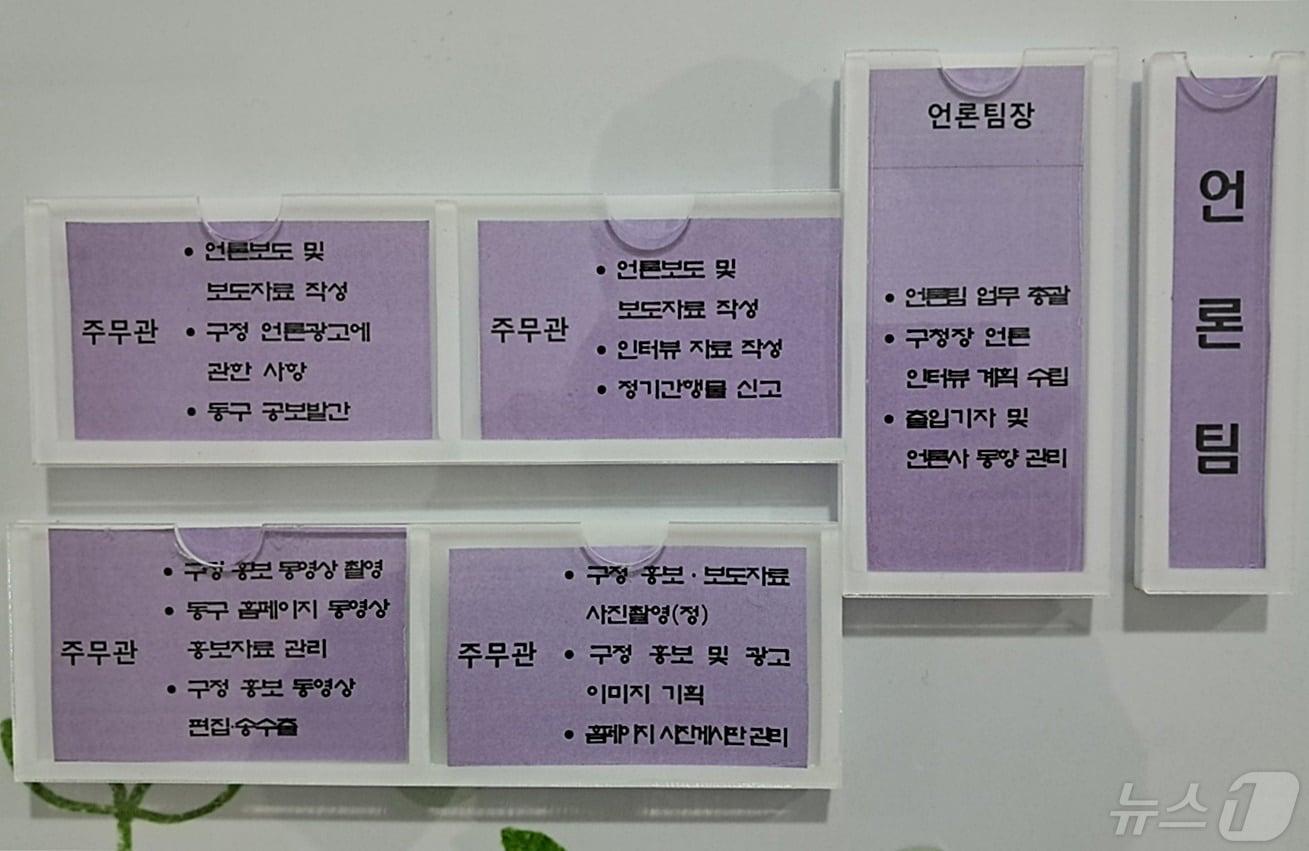 언론팀
언론팀장
• 언론팀 업무 총괄
• 구청장 언론
인터뷰 계획 수립
• 출입기자 및
언론사 동향 관리
주무관
• 언론보도 및
보도자료 작성
• 구정 언론광고에
관한 사항
• 동구 공보발간
주무관
• 언론보도 및
보도자료 작성
• 인터뷰 자료 작성
• 정기간행물 신고
주무관
• 구정 홍보 동영상 촬영
• 동구 홈페이지 동영상
홍보자료 관리
• 구정 홍보 동영상
편집·송수출
주무관
• 구정 홍보·보도자료
사진촬영(정)
• 구정 홍보 및 광고
이미지 기획
• 홈페이지 사진게시판 관리
뉴스1